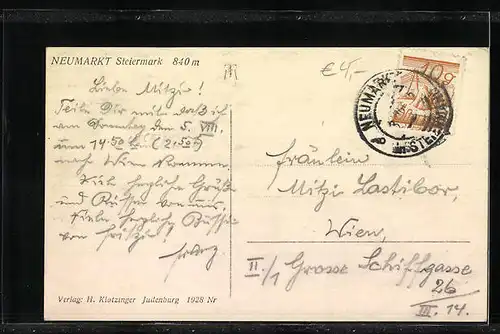 NEUMARKT Steiermark 840 m
€ 4,-
10g
NEUMARKT
Liebe Mitzi!
Teile Dir mit daß ich
am Sonntag den 5. VIII.
um 14.50
nach Wien komme.
Viele herzliche Grüße
und Küsse von mir,
Viele herzliche Bussi
von Fritzi!
Fräulein
Mitzi Lastibor,
Wien,
II./1 Grosse Schiffgasse
26
III. 14.
Verlag: H. Klotzinger Judenburg 1928 Nr